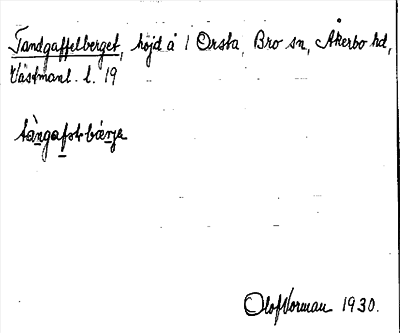 Tandgaffelberget, höjd å 1 Orsta, Bro sn, Åkerbo hd,
Västmanl. l. 19
Olof Norman 1930.